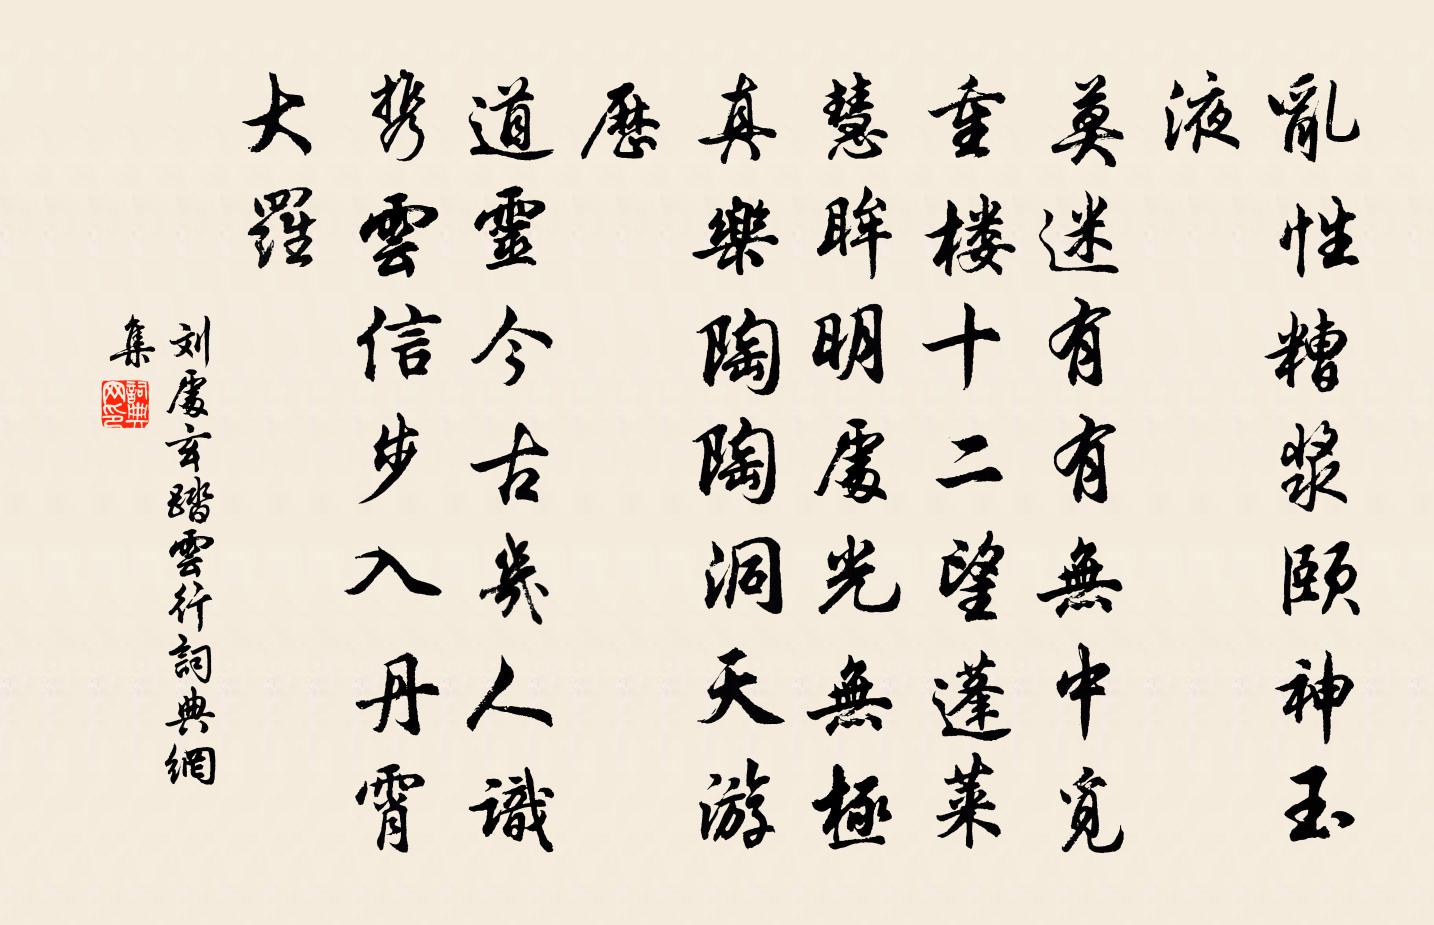 亂性糟漿頤神玉
液
莫迷有有無中覓
重楼十二望蓬萊
慧眸明處光無極
真樂陶陶洞天游
歷
道靈今古幾人識
携雲信步入丹霄
大羅
刘處玄踏雲行詞典網
集
詞典网印